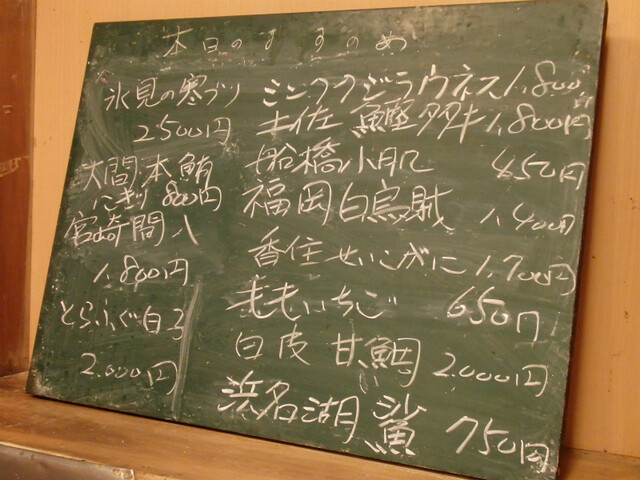 本日のすすめ
氷見の寒ブリ
2500円
大間本鮪
にぎり 800円
宮崎間八
1.800円
とらふぐ白子
2.000円
ミンククジラウネス 1,800
土佐 鰹タタキ 1,800円
船橋小肌 650円
福岡白烏賊 1,400円
香住せいこがに 1,700円
ももいちご 650円
白皮 甘鯛 2.000円
浜名湖 鯊 750円